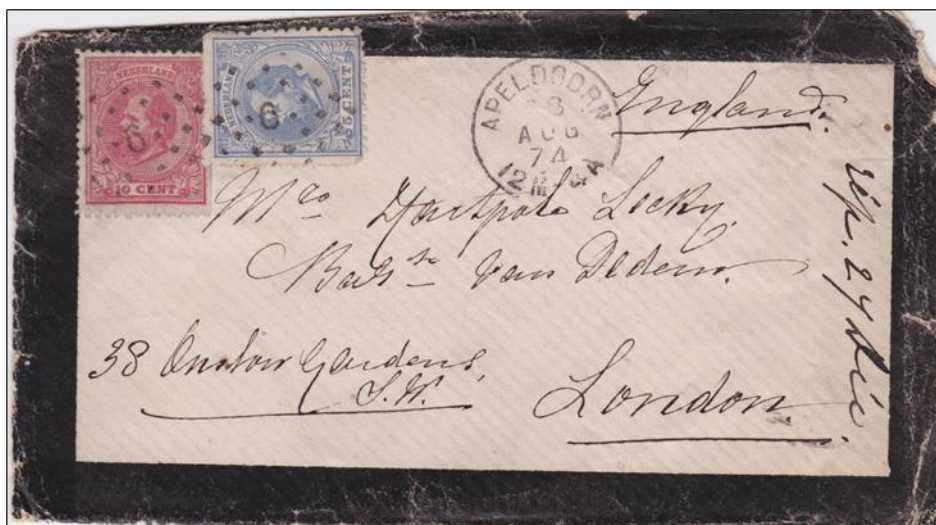 NEDERLAND
10 CENT
6
NEDERLAND
5 CENT
6
APELDOORN
8
AUG
74
12M-4A
England.
Mrs Hartpole Lecky.
Barsse van Dedem.
38 Onslow Gardens,
S.W.
London.
rép. 27 Déc.